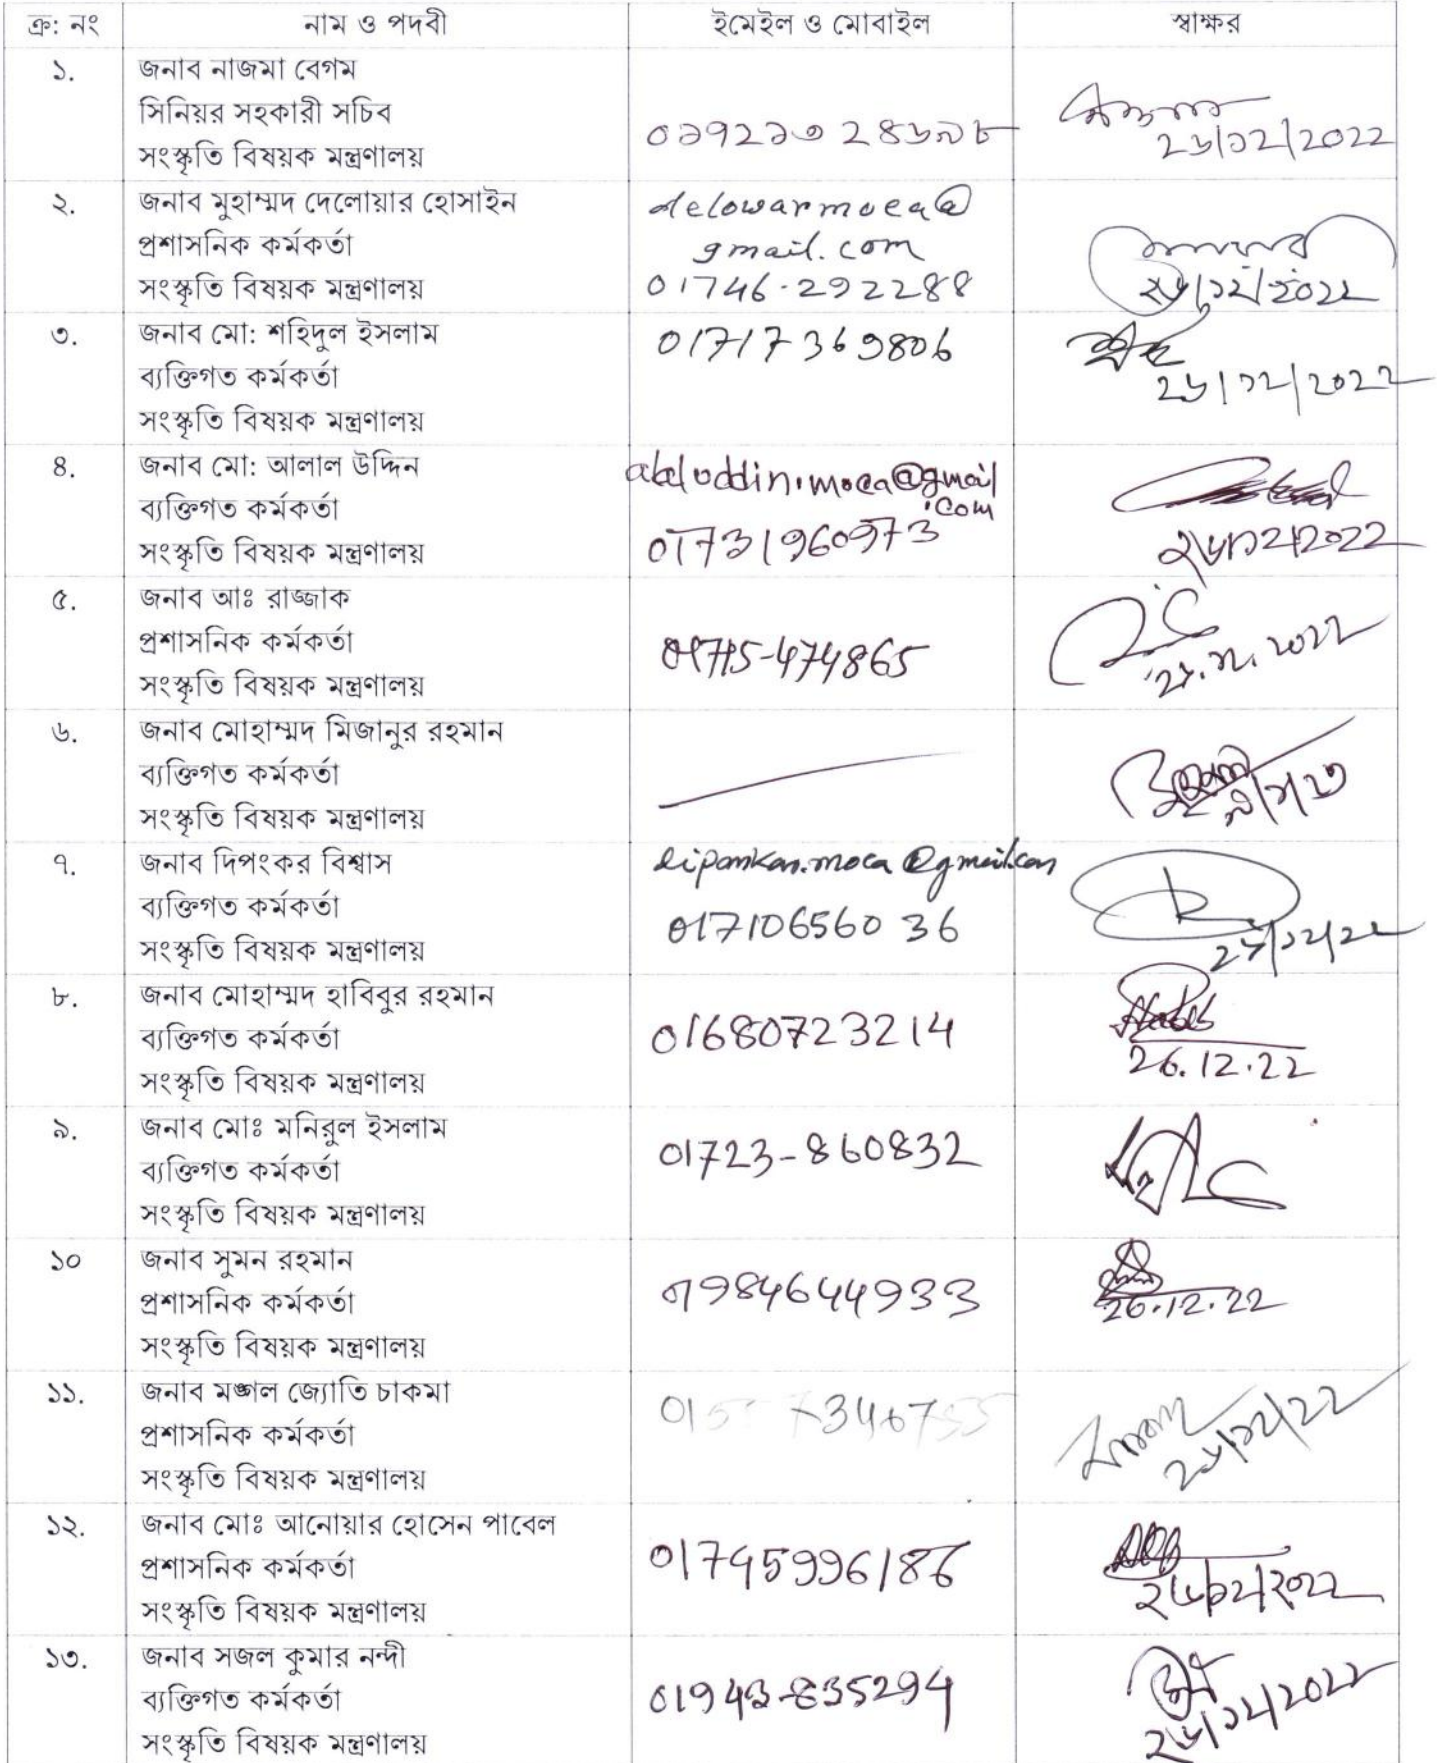 ক্র: নং নাম ও পদবী ইমেইল ও মোবাইল স্বাক্ষর
১. জনাব নাজমা বেগম
সিনিয়র সহকারী সচিব
সংস্কৃতি বিষয়ক মন্ত্রণালয়
২৬/১২/2022
২. জনাব মুহাম্মদ দেলোয়ার হোসাইন
প্রশাসনিক কর্মকর্তা
সংস্কৃতি বিষয়ক মন্ত্রণালয়
delowarmoca@
gmail.com
01746-292288
২৬/১২/২০২২
৩. জনাব মো: শহিদুল ইসলাম
ব্যক্তিগত কর্মকর্তা
সংস্কৃতি বিষয়ক মন্ত্রণালয়
01717369806
২৬/১২/২০২২
৪. জনাব মো: আলাল উদ্দিন
ব্যক্তিগত কর্মকর্তা
সংস্কৃতি বিষয়ক মন্ত্রণালয়
alaluddin.moca@gmail
.com
01731960973
২৬/১২/2022
৫. জনাব আঃ রাজ্জাক
প্রশাসনিক কর্মকর্তা
সংস্কৃতি বিষয়ক মন্ত্রণালয়
01715-474865
৬. জনাব মোহাম্মদ মিজানুর রহমান
ব্যক্তিগত কর্মকর্তা
সংস্কৃতি বিষয়ক মন্ত্রণালয়
৭. জনাব দিপংকর বিশ্বাস
ব্যক্তিগত কর্মকর্তা
সংস্কৃতি বিষয়ক মন্ত্রণালয়
dipankar.moca@gmail.com
01710656036
২৬/১২/২২
৮. জনাব মোহাম্মদ হাবিবুর রহমান
ব্যক্তিগত কর্মকর্তা
সংস্কৃতি বিষয়ক মন্ত্রণালয়
01680723214
26.12.22
৯. জনাব মোঃ মনিরুল ইসলাম
ব্যক্তিগত কর্মকর্তা
সংস্কৃতি বিষয়ক মন্ত্রণালয়
01723-860832
১০ জনাব সুমন রহমান
প্রশাসনিক কর্মকর্তা
সংস্কৃতি বিষয়ক মন্ত্রণালয়
01984644933
26.12.22
১১. জনাব মঙ্গল জ্যোতি চাকমা
প্রশাসনিক কর্মকর্তা
সংস্কৃতি বিষয়ক মন্ত্রণালয়
২৬/১২/২২
১২. জনাব মোঃ আনোয়ার হোসেন পাবেল
প্রশাসনিক কর্মকর্তা
সংস্কৃতি বিষয়ক মন্ত্রণালয়
01745996186
২৬/১২/২০২২
১৩. জনাব সজল কুমার নন্দী
ব্যক্তিগত কর্মকর্তা
সংস্কৃতি বিষয়ক মন্ত্রণালয়
01943-835294
২৬/১২/২০২২